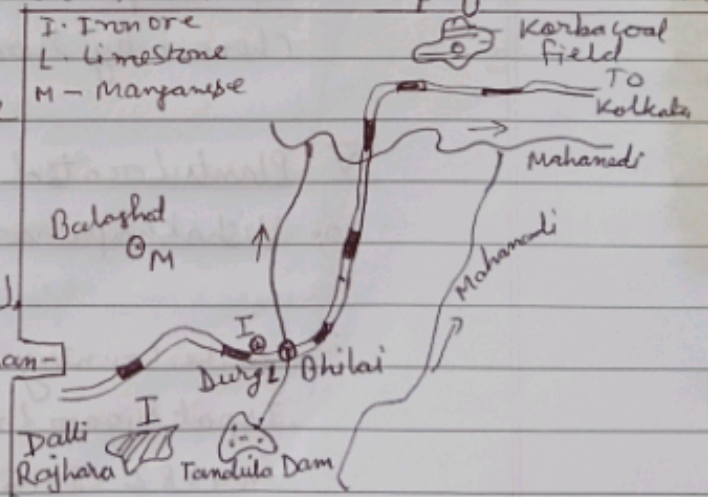 I. Iron ore
L. Limestone
M - Manganese
Korba coal
field
TO
Kolkata
Mahanadi
Balaghat
M
Mahanadi
an-
I
Durg L Bhilai
I
Dalli
Rajhara
Tandula Dam